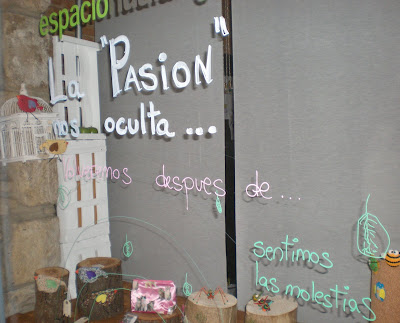 espacio
La "PASION"
nos oculta ...
volvemos despues de ...
sentimos
las molestias